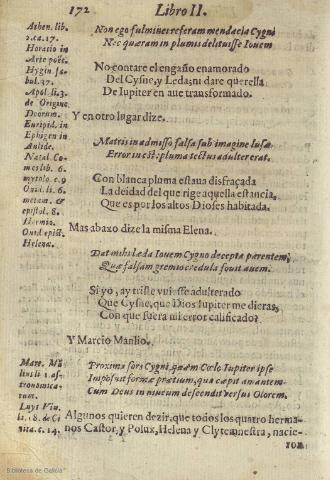 172 Libro II.
Athen. lib.
2. ca. 17.
Horatio in
Arte poët.
Hygin. fa-
bul. 37.
Apol. li. 3.
de Origine
Deorum.
Euripid. in
Ephigen in
Aulide.
Natal. Co-
mes lib. 6.
mytolo. c. 9
Ouid. li. 6.
metam. &
epistol. 8.
Hermio.
Ouid epist.
Helenæ.
Non ego fulminei referam mendacia Cygni
Nec quæram in plumis delituisse Iouem
No contare el engaño enamorado
Del Cysne, y Leda; ni dare querella
De Iupiter en aue transformado.
Y en otro lugar dize.
Matris in admisso falsa sub imagine lusæ
Error inest: pluma tectus adulter erat.
Con blanca pluma estaua disfraçada
La deidad del que rige aquella estancia,
Que es por los altos Dioses habitada.
Mas abaxo dize la misma Elena.
Dat mihi Læda Iouem Cygno decepta parentem;
Quæ falsam gremio credula fouit auem.
Si yo, ay triste vuisse adulterado
Que Cysne, que Dios Iupiter me dieras,
Con que fuera mi error calificado?
Y Marcio Manlio.
Marc. Mā
lius li 1 as-
tronomica
rum.
Luys Viu.
li. 8. de Ci
uita. c. 14.
Proxima sors Cygni, quam Cœlo Iupiter ipse
Imposuit formæ prætium, qua cæpit amantem
Cum Deus in niueum descendit versus Olorem.
Algunos quieren dezir, que todos los quatro herma-
nos Castor, y Polux, Helena y Clytemnestra, nacie-
ron
Biblioteca de Galicia